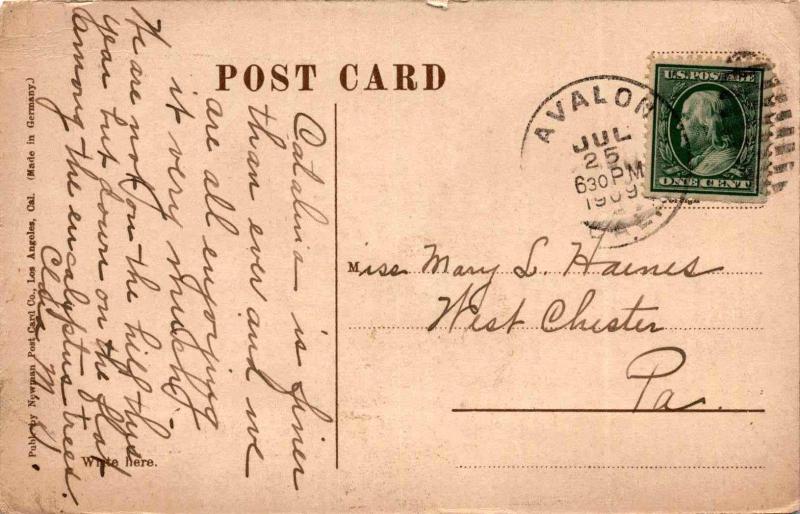 POST CARD
U.S. POSTAGE
ONE CENT
AVALON
JUL
25
630 PM
1909
CAL.
Miss Mary L. Haines
West Chester
Pa.
Catalina is finer
than ever and we
are all enjoying
it very much.
We are not on the hill this
year but down on the flat
among the eucalyptus trees.
Clara M. H.
Write here.
Publ. by Newman Post Card Co., Los Angeles, Cal. (Made in Germany.)